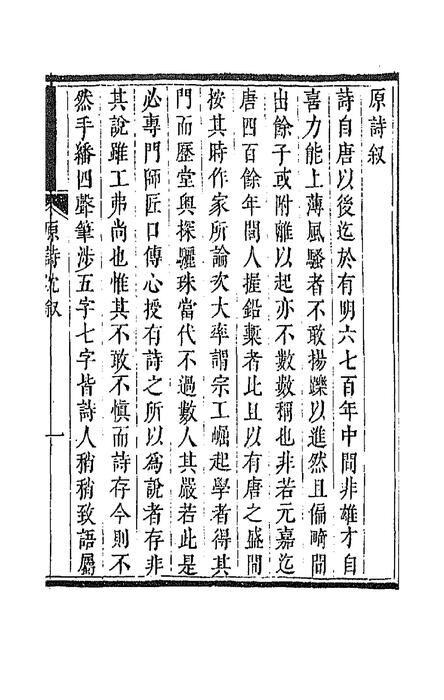 原詩叙
詩自唐以後迄於有明六七百年中間非雄才自
喜力能上薄風騷者不敢揚躒以進然且偏畸間
出餘子或附離以起亦不數數稱也非若元嘉迄
唐四百餘年間人握鉛槧者比且以有唐之盛間
按其時作家所論次大率謂宗工崛起學者得其
門而歷堂奧探驪珠當代不過數人其嚴若此是
必專門師匠口傳心授有詩之所以為說者存非
其說雖工弗尚也惟其不敢不慎而詩存今則不
然手繙四聲筆涉五字七字皆詩人稍稍致語屬
原詩沈叙
一